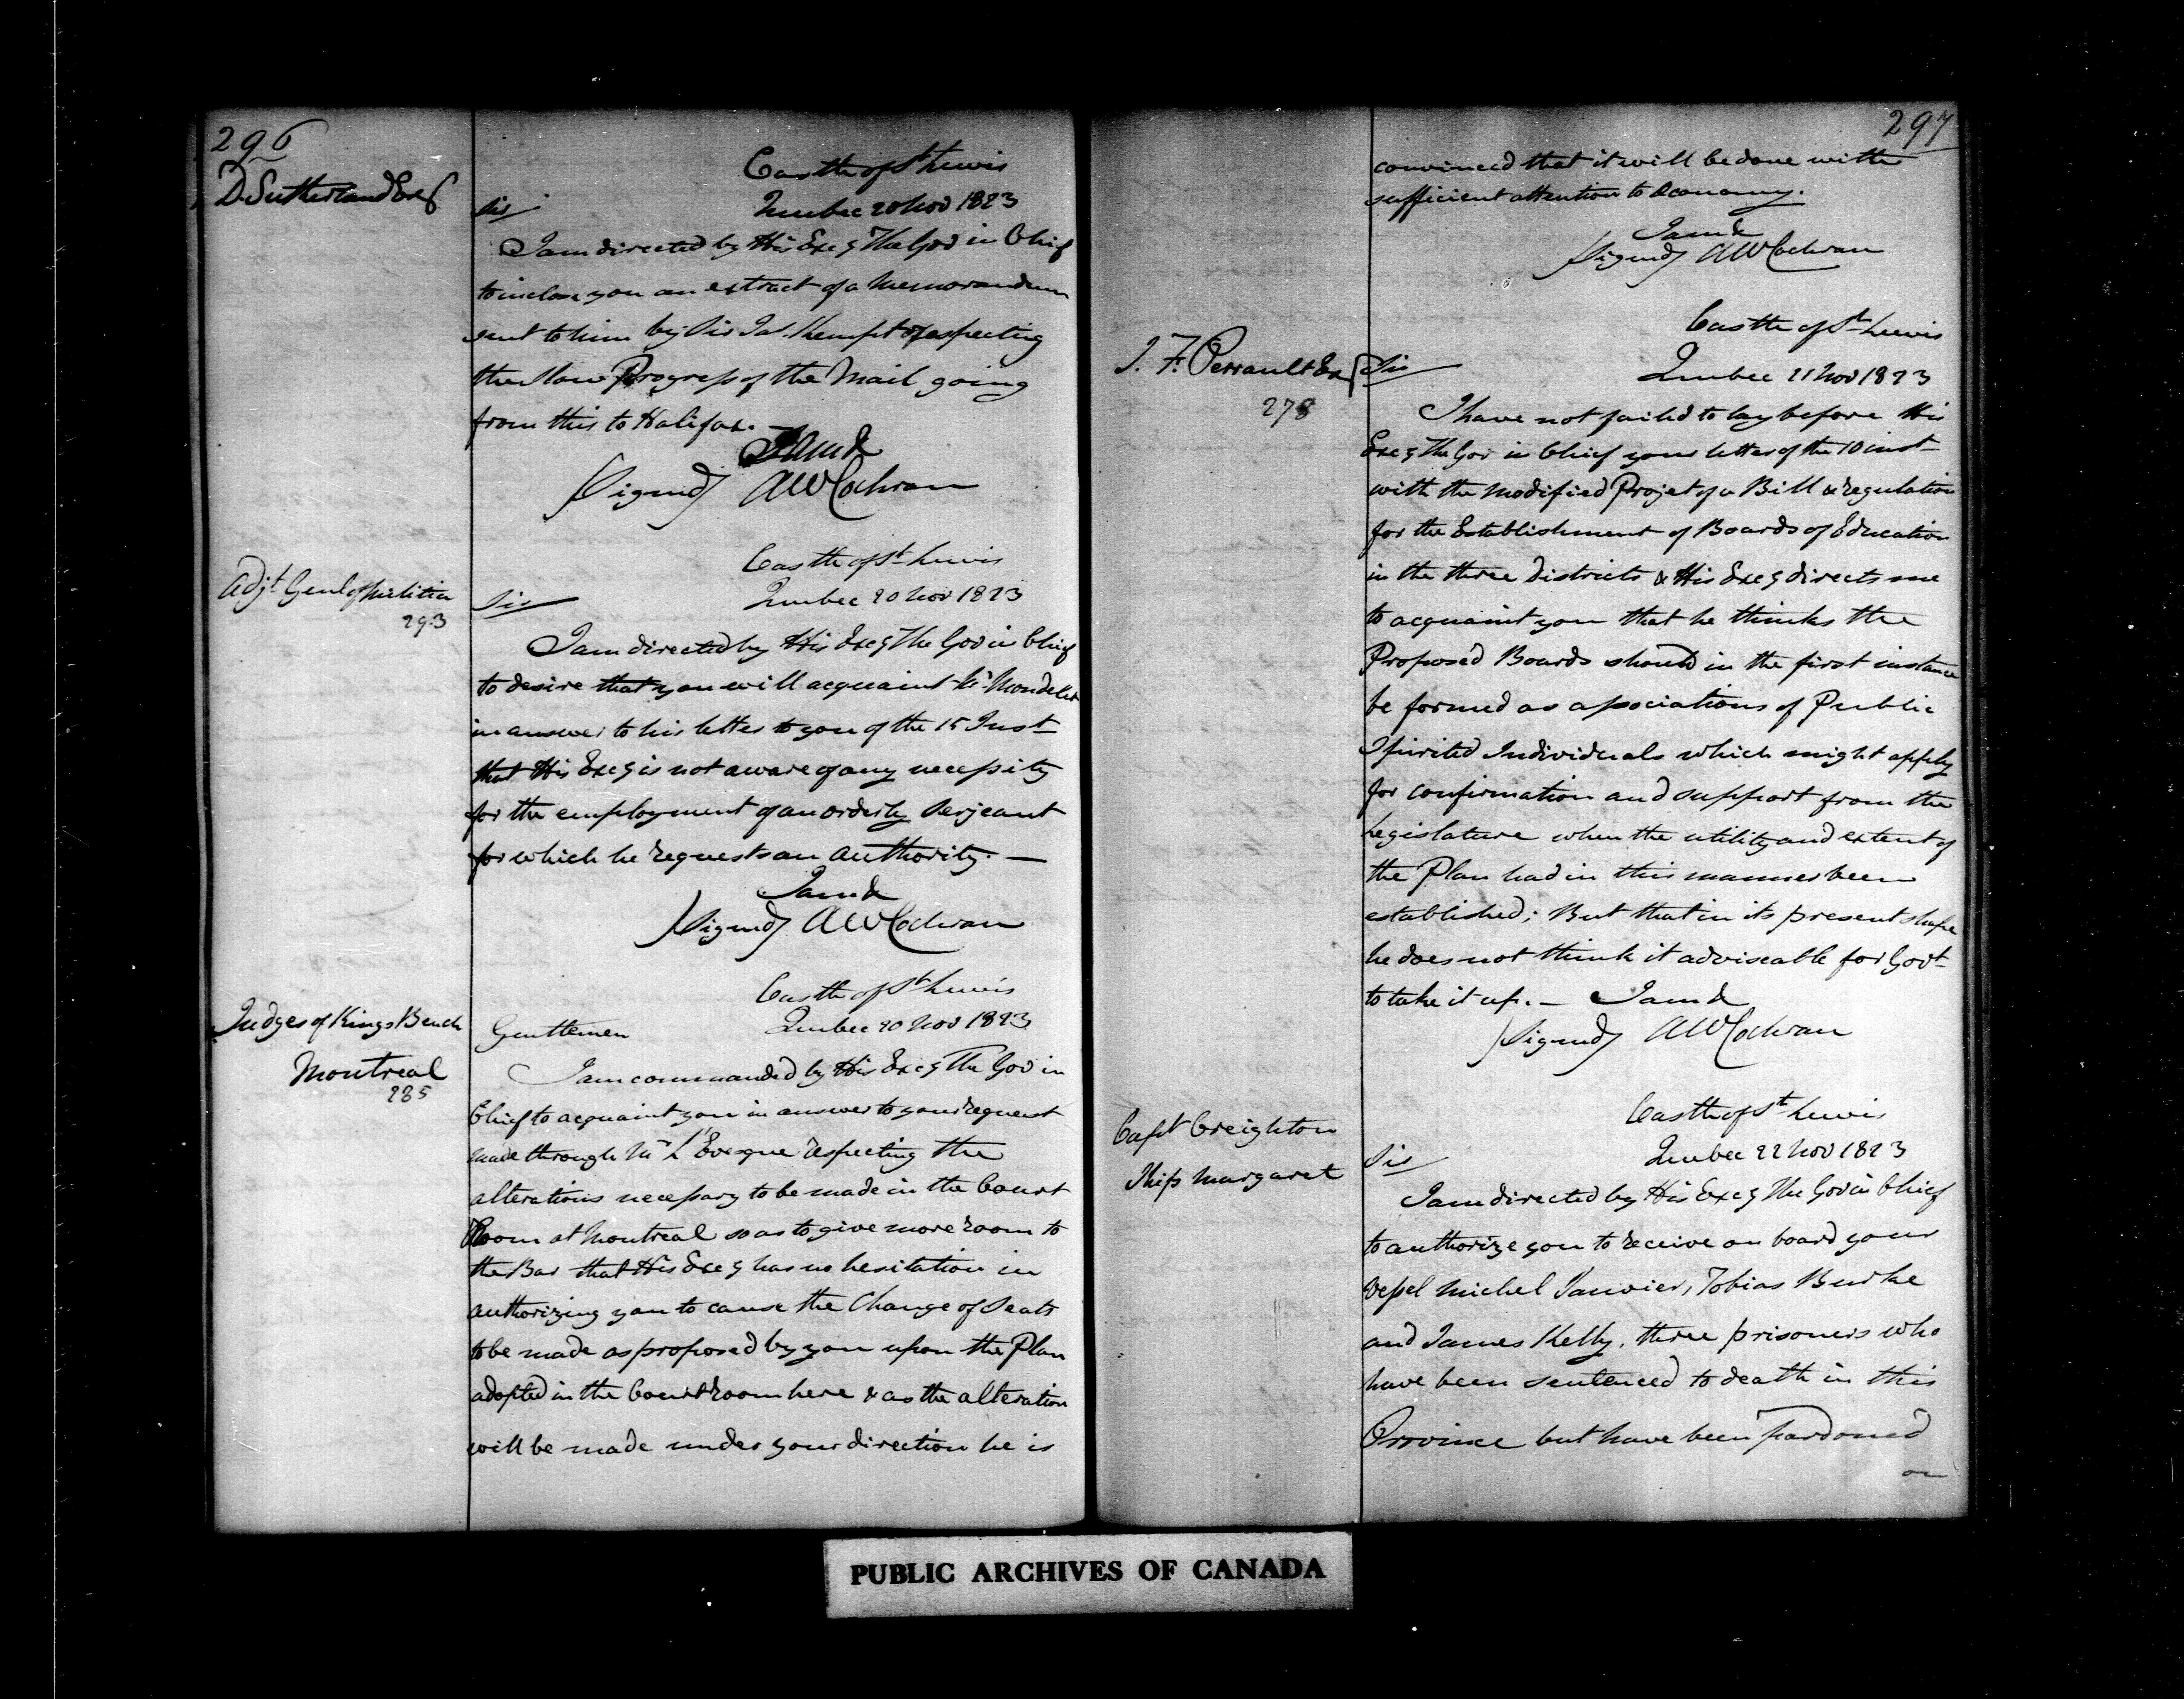 296
D. Sutherland Esq
Castle of St Lewis
Quebec 20 Nov 1823
Sir
I am directed by His Excy The Gov in Chief
to inclose you an extract of a Memorandum
sent to him by Sir Jas. Kempt respecting
the slow Progress of the Mail going
from this to Halifax.
I am &
(Signed) AWCochran
Adjt Genl of Militia
293
Castle of St Lewis
Quebec 20 Nov 1823
Sir
I am directed by His Excy The Gov in Chief
to desire that you will acquaint Mr Mondelet
in answer to his letter to you of the 15 Inst
that His Excy is not aware of any necessity
for the employment of an orderly Serjeant
for which he requests an Authority. —
I am &
(Signed) AWCochran
Judges of Kings Bench
Montreal
285
Castle of St Lewis
Quebec 20 Nov 1823
Gentlemen
I am commanded by His Excy The Gov in
Chief to acquaint you in answer to your request
made through Mr L'Evesque respecting the
alterations necessary to be made in the Court
Room at Montreal so as to give more room to
the Bar that His Excy has no hesitation in
authorizing you to cause the Change of Seats
to be made as proposed by you upon the Plan
adopted in the Court room here & as the alteration
will be made under your direction he is
297
convinced that it will be done with
sufficient attention to Oconomy.
I am &
(Signed) AWCochran
J. F. Perrault Esq
278
Castle of St Lewis
Quebec 21 Nov 1823
Sir
I have not failed to lay before His
Excy The Gov in Chief your letter of the 10 inst
with the modified Projet of a Bill & regulation
for the Establishment of Boards of Education
in the three districts & His Excy directs me
to acquaint you that he thinks the
Proposed Boards should in the first instance
be formed as associations of Public
Spirited Individuals which might apply
for confirmation and support from the
Legislature when the utility and extent of
the Plan had in this manner been
established; But that in its present shape
he does not think it adviseable for Govt
to take it up. — I am &
(Signed) AWCochran
Capt Creighton
Ship Margaret
Castle of St Lewis
Quebec 22 Nov 1823
Sir
I am directed by His Excy The Gov in Chief
to authorize you to receive on board your
vessel Michel Janvier, Tobias Burke
and James Kelly, three prisoners who
have been sentenced to death in this
Province but have been pardoned
on
PUBLIC ARCHIVES OF CANADA